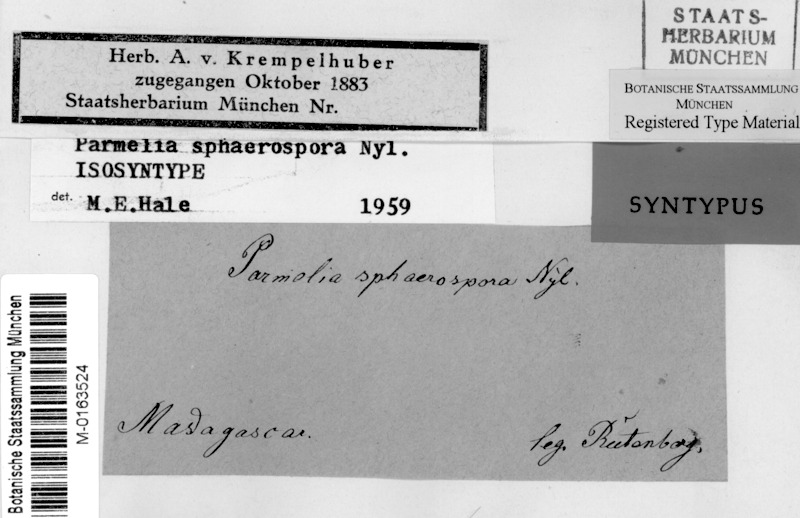 STAATS-
HERBARIUM
MÜNCHEN
Herb. A. v. Krempelhuber
zugegangen Oktober 1883
Staatsherbarium München Nr.
BOTANISCHE STAATSSAMMLUNG
MÜNCHEN
Registered Type Material
Parmelia sphaerospora Nyl.
ISOSYNTYPE
det. M.E.Hale 1959
SYNTYPUS
Parmelia sphaerospora Nyl.
Madagascar.
leg. Rutenberg.
Botanische Staatssammlung München
M-0163524